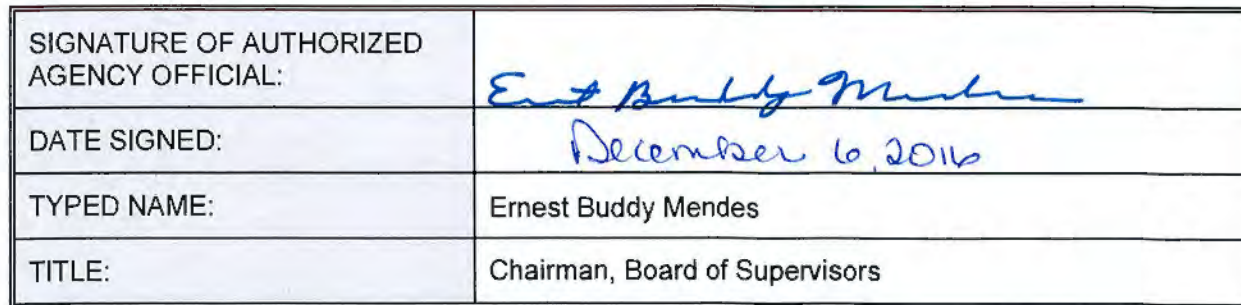 SIGNATURE OF AUTHORIZED
AGENCY OFFICIAL:
Ernest Buddy Mendes
DATE SIGNED:
December 6, 2016
TYPED NAME:
Ernest Buddy Mendes
TITLE:
Chairman, Board of Supervisors